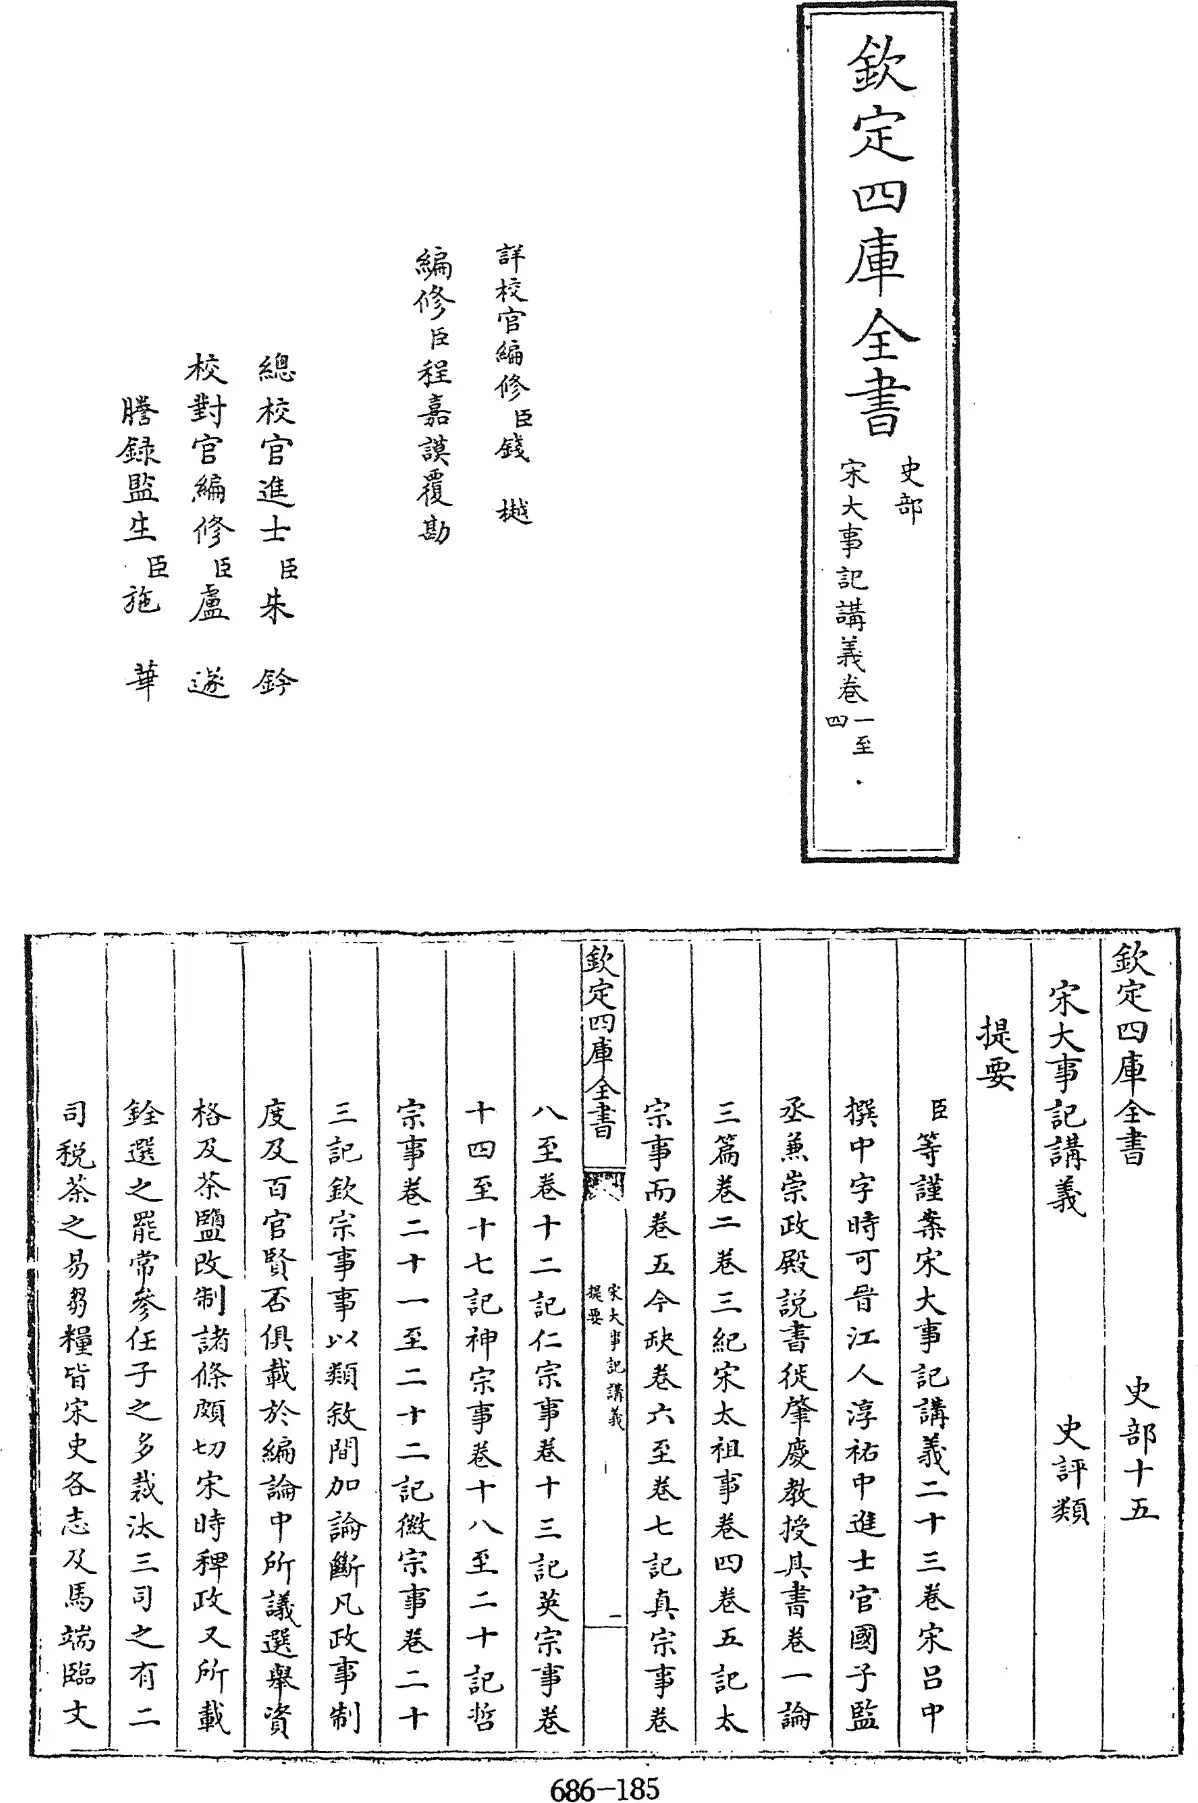 欽定四庫全書
史部
宋大事記講義卷一至四
詳校官編修臣錢樾
編修臣程嘉謨覆勘
總校官進士臣朱鈐
校對官編修臣盧遂
謄録監生臣施華
欽定四庫全書 史部十五
宋大事記講義 史評類
提要
臣等謹案宋大事記講義二十三卷宋呂中
撰中字時可晉江人淳祐中進士官國子監
丞兼崇政殿説書徙肇慶教授其書卷一論
三篇卷二卷三紀宋太祖事卷四卷五記太
宗事而卷五今缺卷六至卷七記真宗事卷
欽定四庫全書
宋大事記講義
提要
一
八至卷十二記仁宗事卷十三記英宗事卷
十四至十七記神宗事卷十八至二十記哲
宗事卷二十一至二十二記徽宗事卷二十
三記欽宗事事以類敘間加論斷凡政事制
度及百官賢否俱載於編論中所議選舉資
格及茶鹽改制諸條頗切宋時稗政又所載
銓選之罷常參任子之多裁汰三司之有二
司税茶之易芻糧皆宋史各志及馬端臨文
686-185